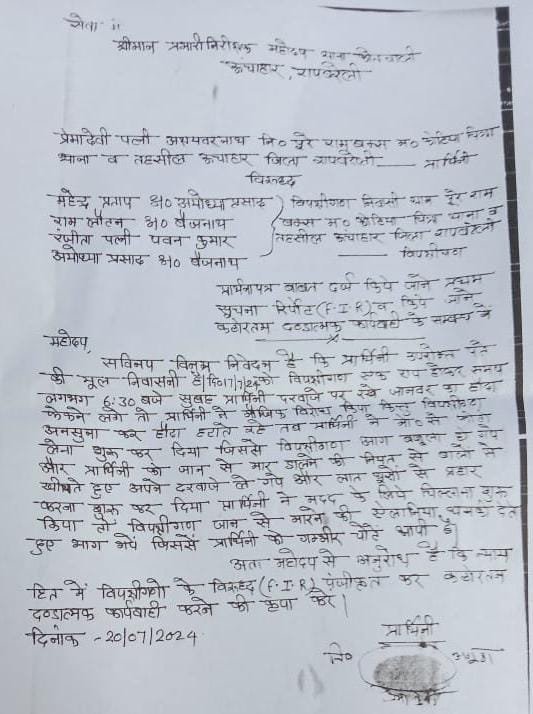 सेवा में
श्रीमान प्रभारी निरीक्षक महोदय थाना कोतवाली
ऊंचाहार, रायबरेली
प्रेमादेवी पत्नी अक्षयवरनाथ नि० पूरे रामबक्स म० कोटिया चित्रा
थाना व तहसील ऊंचाहार जिला रायबरेली —— प्रार्थिनी
विरुद्ध
महेन्द्र प्रताप S/o अयोध्या प्रसाद
राम लौटन S/o बैजनाथ
रंजीता पत्नी पवन कुमार
अयोध्या प्रसाद S/o बैजनाथ
विपक्षीगण निवासी ग्राम पूरे राम
बक्स म० कोटिया चित्रा थाना व
तहसील ऊंचाहार जिला रायबरेली
—— विपक्षीगण
प्रार्थनापत्र बावत दर्ज किये जाने प्रथम
सूचना रिपोर्ट (F.I.R) व किये जाने
कठोरतम दण्डात्मक कार्यवाही के सम्बन्ध में
महोदय,
सविनय विनम्र निवेदन है कि प्रार्थिनी उपरोक्त पते
की मूल निवासनी है। दि० को विपक्षीगण एक राय होकर समय
लगभग 6:30 बजे सुबह प्रार्थिनी दरवाजे पर रखे जानवर का हौदा
फेकने लगे तो प्रार्थिनी ने मौखिक विरोध किया किन्तु विपक्षीगण
अनसुना कर हौदा हटाते रहे तब प्रार्थिनी ने मो० से फोटो
लेना शुरू कर दिया जिससे विपक्षीगण आग बबूला हो गये
और प्रार्थिनी को जान से मार डालने की नियत से बालों से
खींचते हुए अपने दरवाजे ले गये और लात घूसों से प्रहार
करना शुरू कर दिया प्रार्थिनी ने मदद के लिये चिल्लाना शुरू
किया तो विपक्षीगण जान से मारने की धमकी देते
हुए भाग गये जिससे प्रार्थिनी को गम्भीर चोटें आयी है।
अतः महोदय से अनुरोध है कि न्याय
हित में विपक्षीगणों के विरुद्ध (F.I.R) पंजीकृत कर कठोरतम
दण्डात्मक कार्यवाही करने की कृपा करें।
दिनांक - 20/07/2024
प्रार्थिनी
नि० अंगूठा